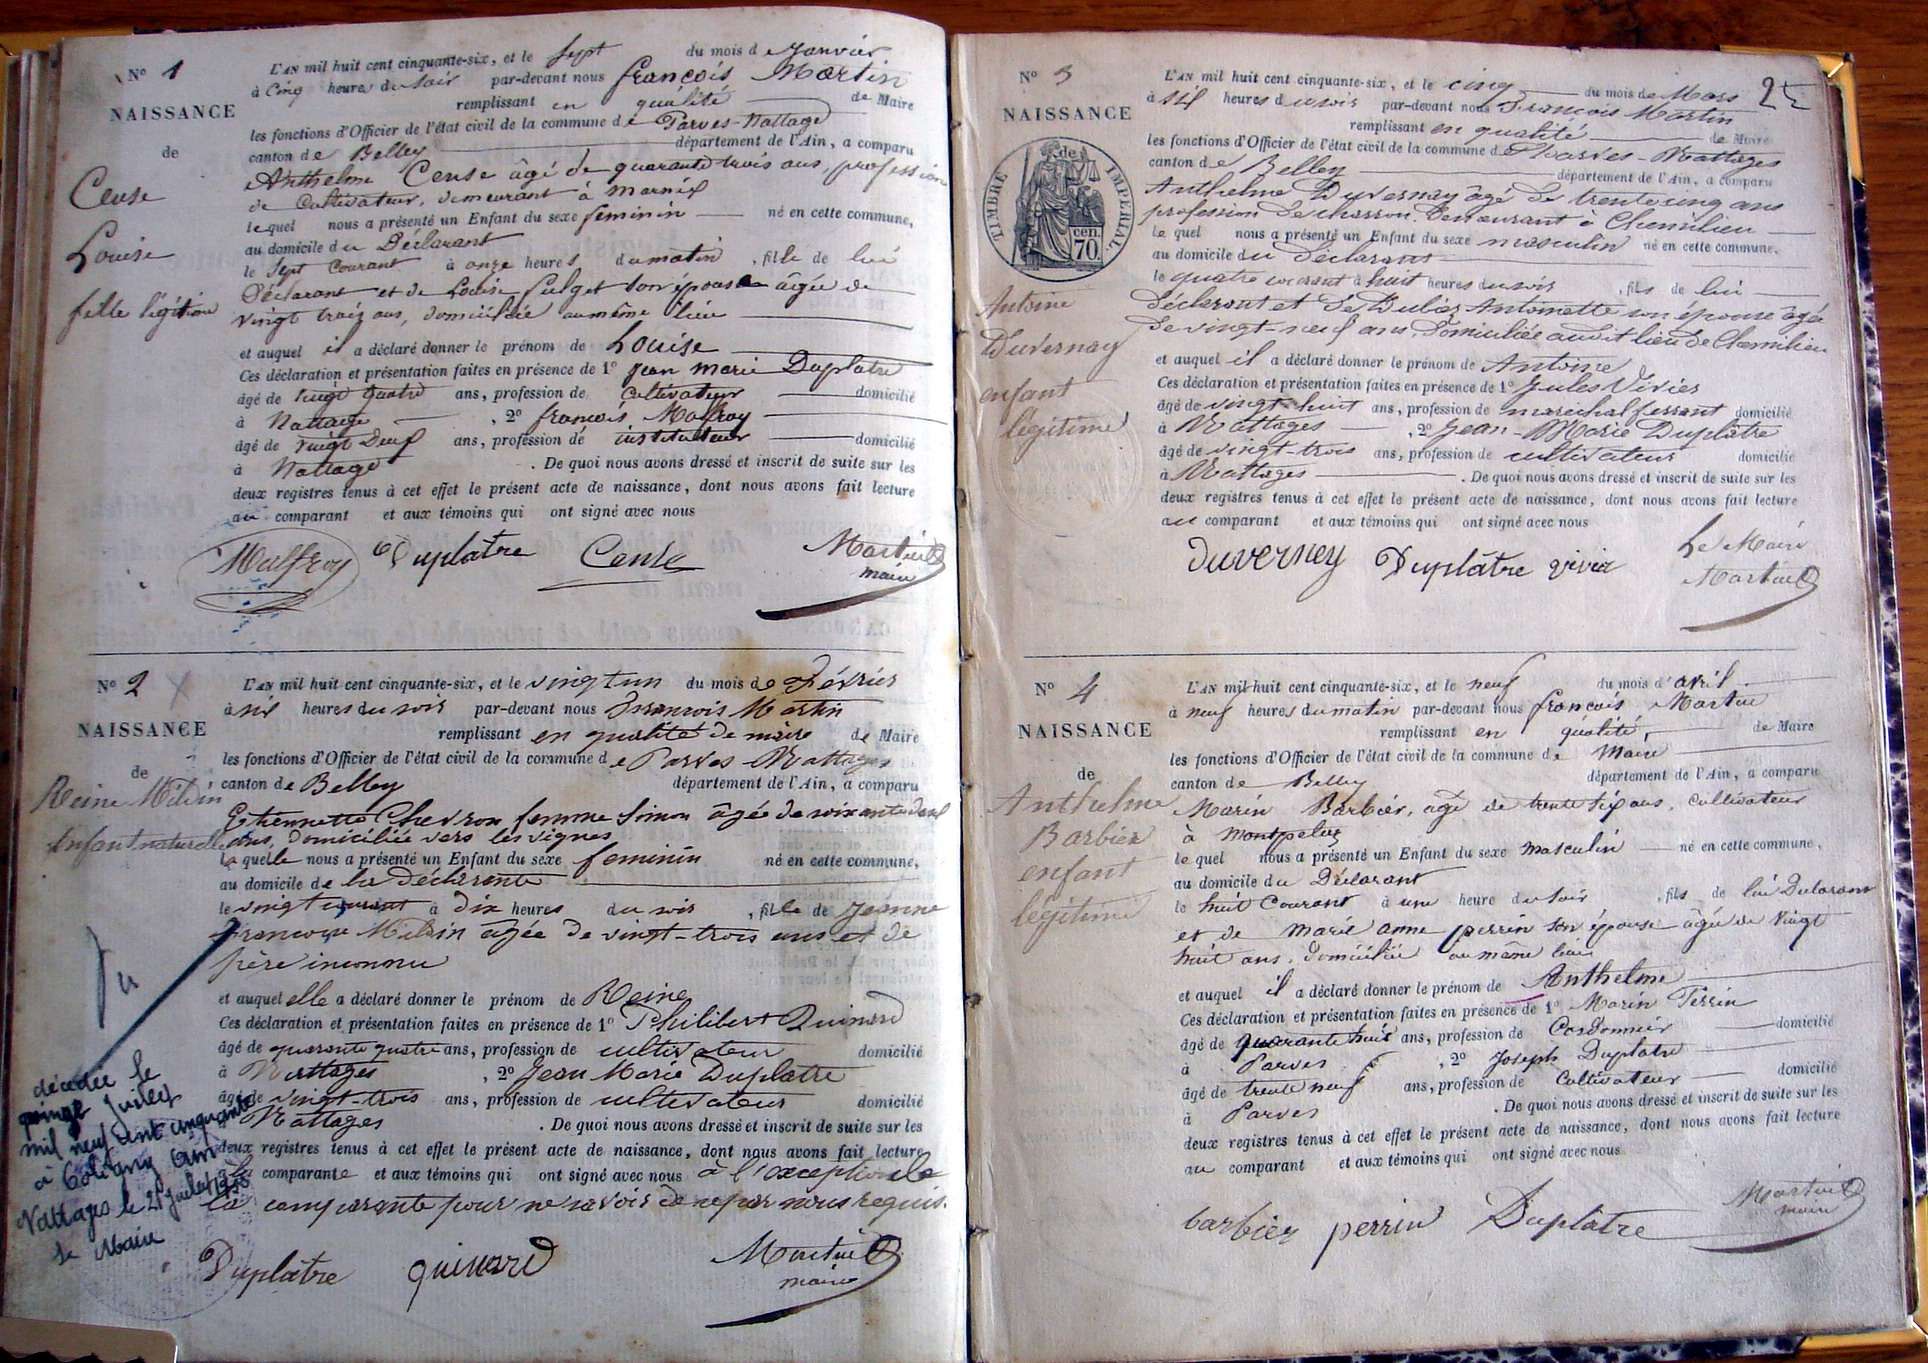 N° 1
NAISSANCE
de
Cense
Louise
fille légitime
L'AN mil huit cent cinquante-six, et le sept du mois de Janvier
à cinq heures du soir par-devant nous françois Martin
remplissant en qualité de Maire
les fonctions d'Officier de l'état civil de la commune de Parves-Nattage
canton de Belley département de l'Ain, a comparu
Anthelme Cense âgé de quarante trois ans, profession
de Cultivateur, demeurant à
lequel nous a présenté un Enfant du sexe feminin né en cette commune,
au domicile du Déclarant
le sept courant à onze heures du matin, fille de lui
Déclarant et de Louise son épouse âgée de
vingt trois ans, domiciliée au même lieu
et auquel il a déclaré donner le prénom de Louise
Ces déclaration et présentation faites en présence de 1° Jean marie Duplatre
âgé de vingt quatre ans, profession de Cultivateur domicilié
à Nattage, 2° françois Malfroy
âgé de vingt Deuf ans, profession de instituteur domicilié
à Nattage. De quoi nous avons dressé et inscrit de suite sur les
deux registres tenus à cet effet le présent acte de naissance, dont nous avons fait lecture
au comparant et aux témoins qui ont signé avec nous
Malfroy Duplatre Cense Martin
maire
N° 2
NAISSANCE
de
Reine Milsin
Enfant naturelle
L'AN mil huit cent cinquante-six, et le vingt un du mois de Février
à six heures du soir par-devant nous François Martin
remplissant en qualité de maire de Maire
les fonctions d'Officier de l'état civil de la commune de Parves-Nattages
canton de Belley département de l'Ain, a comparu
Etiennette Chevron femme Simon âgée de soixante deux
ans, domiciliée vers les vignes
laquelle nous a présenté un Enfant du sexe feminin né en cette commune,
au domicile de la Déclarante
le vingt courant à dix heures du soir, fille de Jeanne
françoise âgée de vingt-trois ans et de
père inconnu
et auquel elle a déclaré donner le prénom de Reine
Ces déclaration et présentation faites en présence de 1° Philibert Quinard
âgé de quarante quatre ans, profession de cultivateur domicilié
à Nattages, 2° Jean Marie Duplatre
âgé de vingt-trois ans, profession de cultivateur domicilié
à Nattages. De quoi nous avons dressé et inscrit de suite sur les
deux registres tenus à cet effet le présent acte de naissance, dont nous avons fait lecture
à la comparante et aux témoins qui ont signé avec nous à l'exception de
la comparante pour ne savoir de ce par nous requis.
Duplatre quinard Martin
maire
décédée le
quinze Juillet
mil neuf cent cinquante
à Coligny Ain
Nattages le 21 Juillet
le Maire
N° 3
2
NAISSANCE
de
TIMBRE IMPERIAL
70 cen.
Antoine
Duvernay
enfant
légitime
L'AN mil huit cent cinquante-six, et le cinq du mois de Mars
à six heures du soir par-devant nous François Martin
remplissant en qualité de Maire
les fonctions d'Officier de l'état civil de la commune de Parves-Nattages
canton de Belley département de l'Ain, a comparu
Anthelme Duvernay âgé de trente cinq ans
profession de charron demeurant à Chemilieu
lequel nous a présenté un Enfant du sexe masculin né en cette commune,
au domicile du déclarant
le quatre courant à huit heures du soir, fils de lui
déclarant et de Antoinette son épouse âgée
de vingt-neuf ans, domiciliée audit lieu de Chemilieu
et auquel il a déclaré donner le prénom de Antoine
Ces déclaration et présentation faites en présence de 1° Jules Vivier
âgé de vingt-huit ans, profession de maréchal ferrant domicilié
à Nattages, 2° Jean-Marie Duplâtre
âgé de vingt-trois ans, profession de cultivateur domicilié
à Nattages. De quoi nous avons dressé et inscrit de suite sur les
deux registres tenus à cet effet le présent acte de naissance, dont nous avons fait lecture
au comparant et aux témoins qui ont signé avec nous
Duverney Duplâtre vivier Le Maire
Martin
N° 4
NAISSANCE
de
Anthelme
Barbier
enfant
légitime
L'AN mil huit cent cinquante-six, et le neuf du mois d'avril
à neuf heures du matin par-devant nous françois Martin
remplissant en qualité, de Maire
les fonctions d'Officier de l'état civil de la commune de Maire
canton de Belley département de l'Ain, a comparu
Marin Barbier, âgé de trente six ans, cultivateur
à Montpelaz
lequel nous a présenté un Enfant du sexe masculin né en cette commune,
au domicile du Déclarant
le huit courant à une heure du soir, fils de lui Déclarant
et de marie anne perrin son épouse âgée de vingt
huit ans, domiciliée au même lieu
et auquel il a déclaré donner le prénom de Anthelme
Ces déclaration et présentation faites en présence de 1° Marin Perrin
âgé de quarante huit ans, profession de Cordonnier domicilié
à Parves, 2° Joseph Duplatre
âgé de trente neuf ans, profession de Cultivateur domicilié
à Parves. De quoi nous avons dressé et inscrit de suite sur les
deux registres tenus à cet effet le présent acte de naissance, dont nous avons fait lecture
au comparant et aux témoins qui ont signé avec nous
barbier perrin Duplâtre Martin
maire